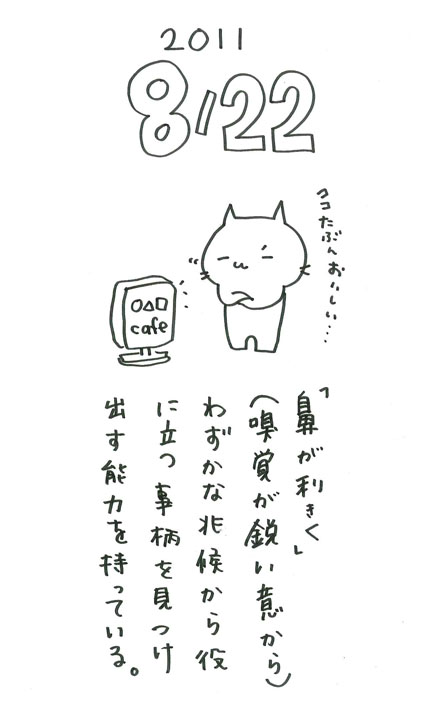 2011
8/22
ココたぶんおいしい…
○△□
cafe
「鼻が利きく」
(嗅覚が鋭い意から)
わずかな兆候から役
に立つ事柄を見つけ
出す能力を持っている。